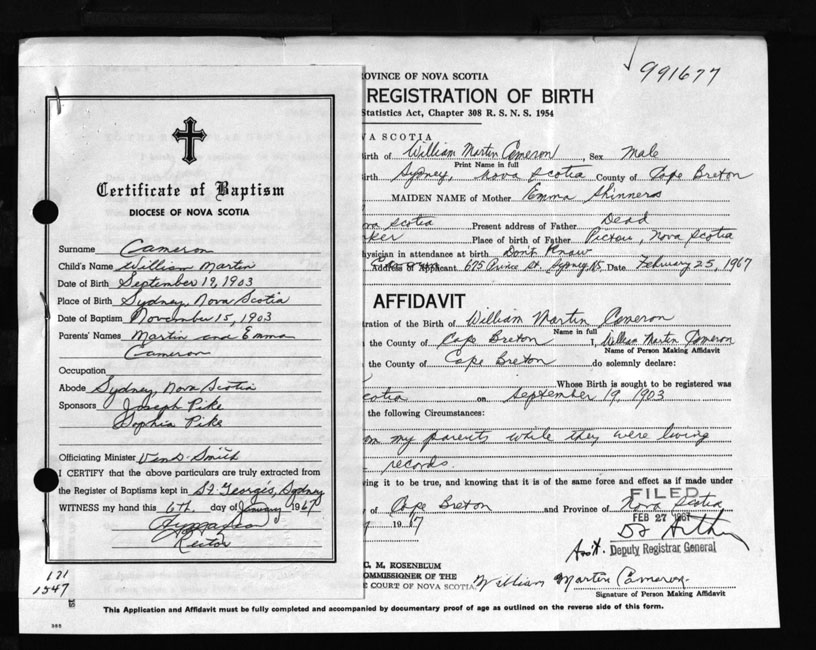 991677
Certificate of Baptism
DIOCESE OF NOVA SCOTIA
Surname Cameron
Child's Name William Martin
Date of Birth September 19, 1903
Place of Birth Sydney, Nova Scotia
Date of Baptism November 15, 1903
Parents' Names Martin and Emma
Cameron
Occupation
Abode Sydney, Nova Scotia
Sponsors Joseph Pike
Sophia Pike
Officiating Minister Smith
I CERTIFY that the above particulars are truly extracted from
the Register of Baptisms kept in St. George's, Sydney
WITNESS my hand this 6th day of January 1967
Rector
131
1547
OVINCE OF NOVA SCOTIA
REGISTRATION OF BIRTH
Statistics Act, Chapter 308 R. S. N. S. 1954
VA SCOTIA
irth of William Martin Cameron, Sex Male
Print Name in full
irth Sydney, Nova Scotia County of Cape Breton
MAIDEN NAME of Mother Emma Skinners
scotia Present address of Father Dead
ker Place of birth of Father Pictou, Nova Scotia
ysician in attendance at birth Don't Know
Address of Applicant 675 Prince St. Sydney NS Date February 25, 1967
AFFIDAVIT
tration of the Birth of William Martin Cameron
Name in full
the County of Cape Breton I, William Martin Cameron
Name of Person Making Affidavit
the County of Cape Breton do solemnly declare:
Whose Birth is sought to be registered was
cotia on September 19, 1903
the following Circumstances:
om my parents while they were living
records.
ving it to be true, and knowing that it is of the same force and effect as if made under
of Cape Breton and Province of Nova Scotia
FILED
FEB 27 1967
Deputy Registrar General
Ass't.
M. ROSENBLUM
OMMISSIONER OF THE
COURT OF NOVA SCOTIA
William Martin Cameron
Signature of Person Making Affidavit
This Application and Affidavit must be fully completed and accompanied by documentary proof of age as outlined on the reverse side of this form.